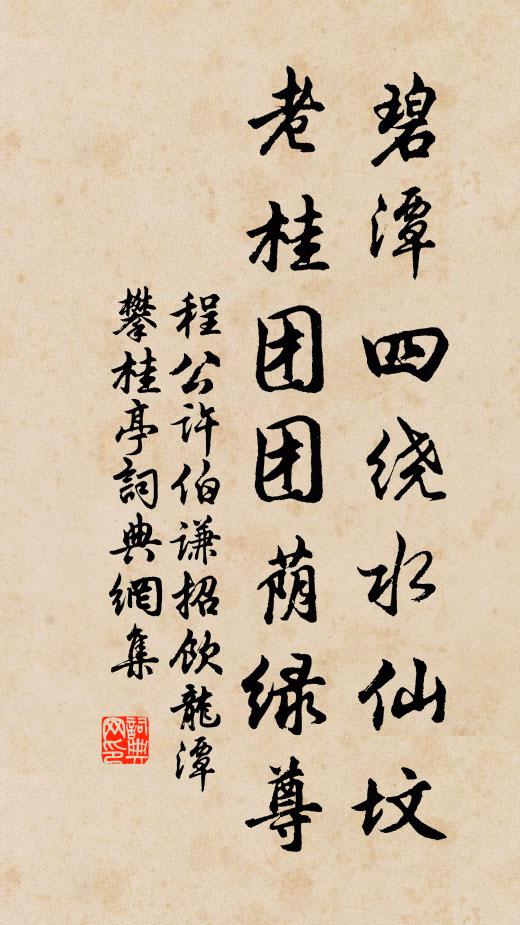 碧潭四绕水仙坟
老桂团团荫绿尊
程公许伯谦招饮龍潭
攀桂亭詞典網集
詞典网印